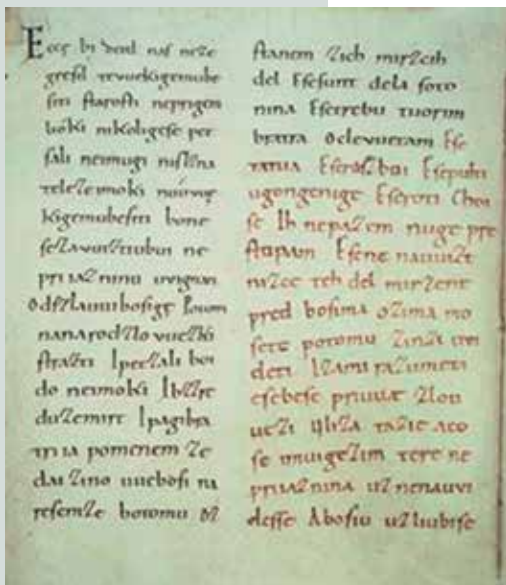 Ecce bi detd naſ neze
greſil tevuekigemube
ſiti ſtaroſti neprigem
lioki nikoligeſe pet
ſali neimugi niſlzna
teleze imoki nuúvue
kigemubeſiti bone
ſezavuiztiubui ne
priiazninu uvignan
Odſzlauuiboſige Potom
nanarodzlovuezki
ſtraſti Ipetzali boi
do neimoki Ibzzre
duzemirt Ipagibra
triia pomenem ze
dai zinouueboſi na
reſemze botomu oz
ſtanem zich mirzcih
del Eſeſunt dela ſoto
nina Eſetrebu tuorim
bratra Oclevuetam Eſe
tatua Eſeraſboi Eſepulti
ugongenige Eſeroti Choi
ſe Ih nepazem nuge pre
ſtopam Eſene nauuizt
nizce teh del mirzene
pred boſima ozima mo
ſete potomu zinzi uvi
deti Izami razumeti
eſebeſe priuuae zlou
uezi Uliza tazie aco
ſe imuigezim tere ne
priiaznina uznenauvi
deſſe Aboſiu uzliubiſe